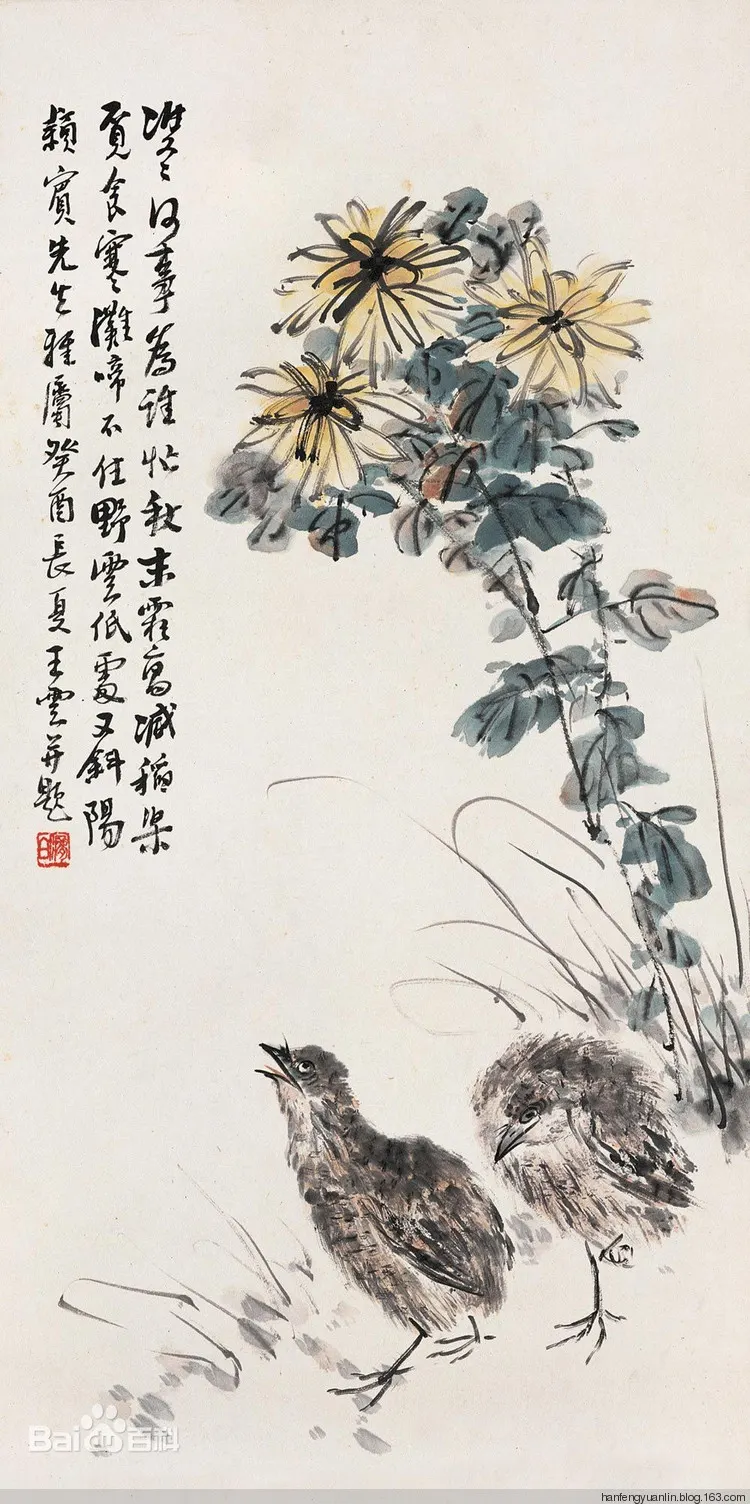 雙雙何事為誰忙秋末霜高減稻梁
覓食寒灘啼不住野雲低處又斜陽
賓先生雅屬癸酉長夏王雲并題
夢白
Bai百科
hanfengyuanlin.blog.163.com